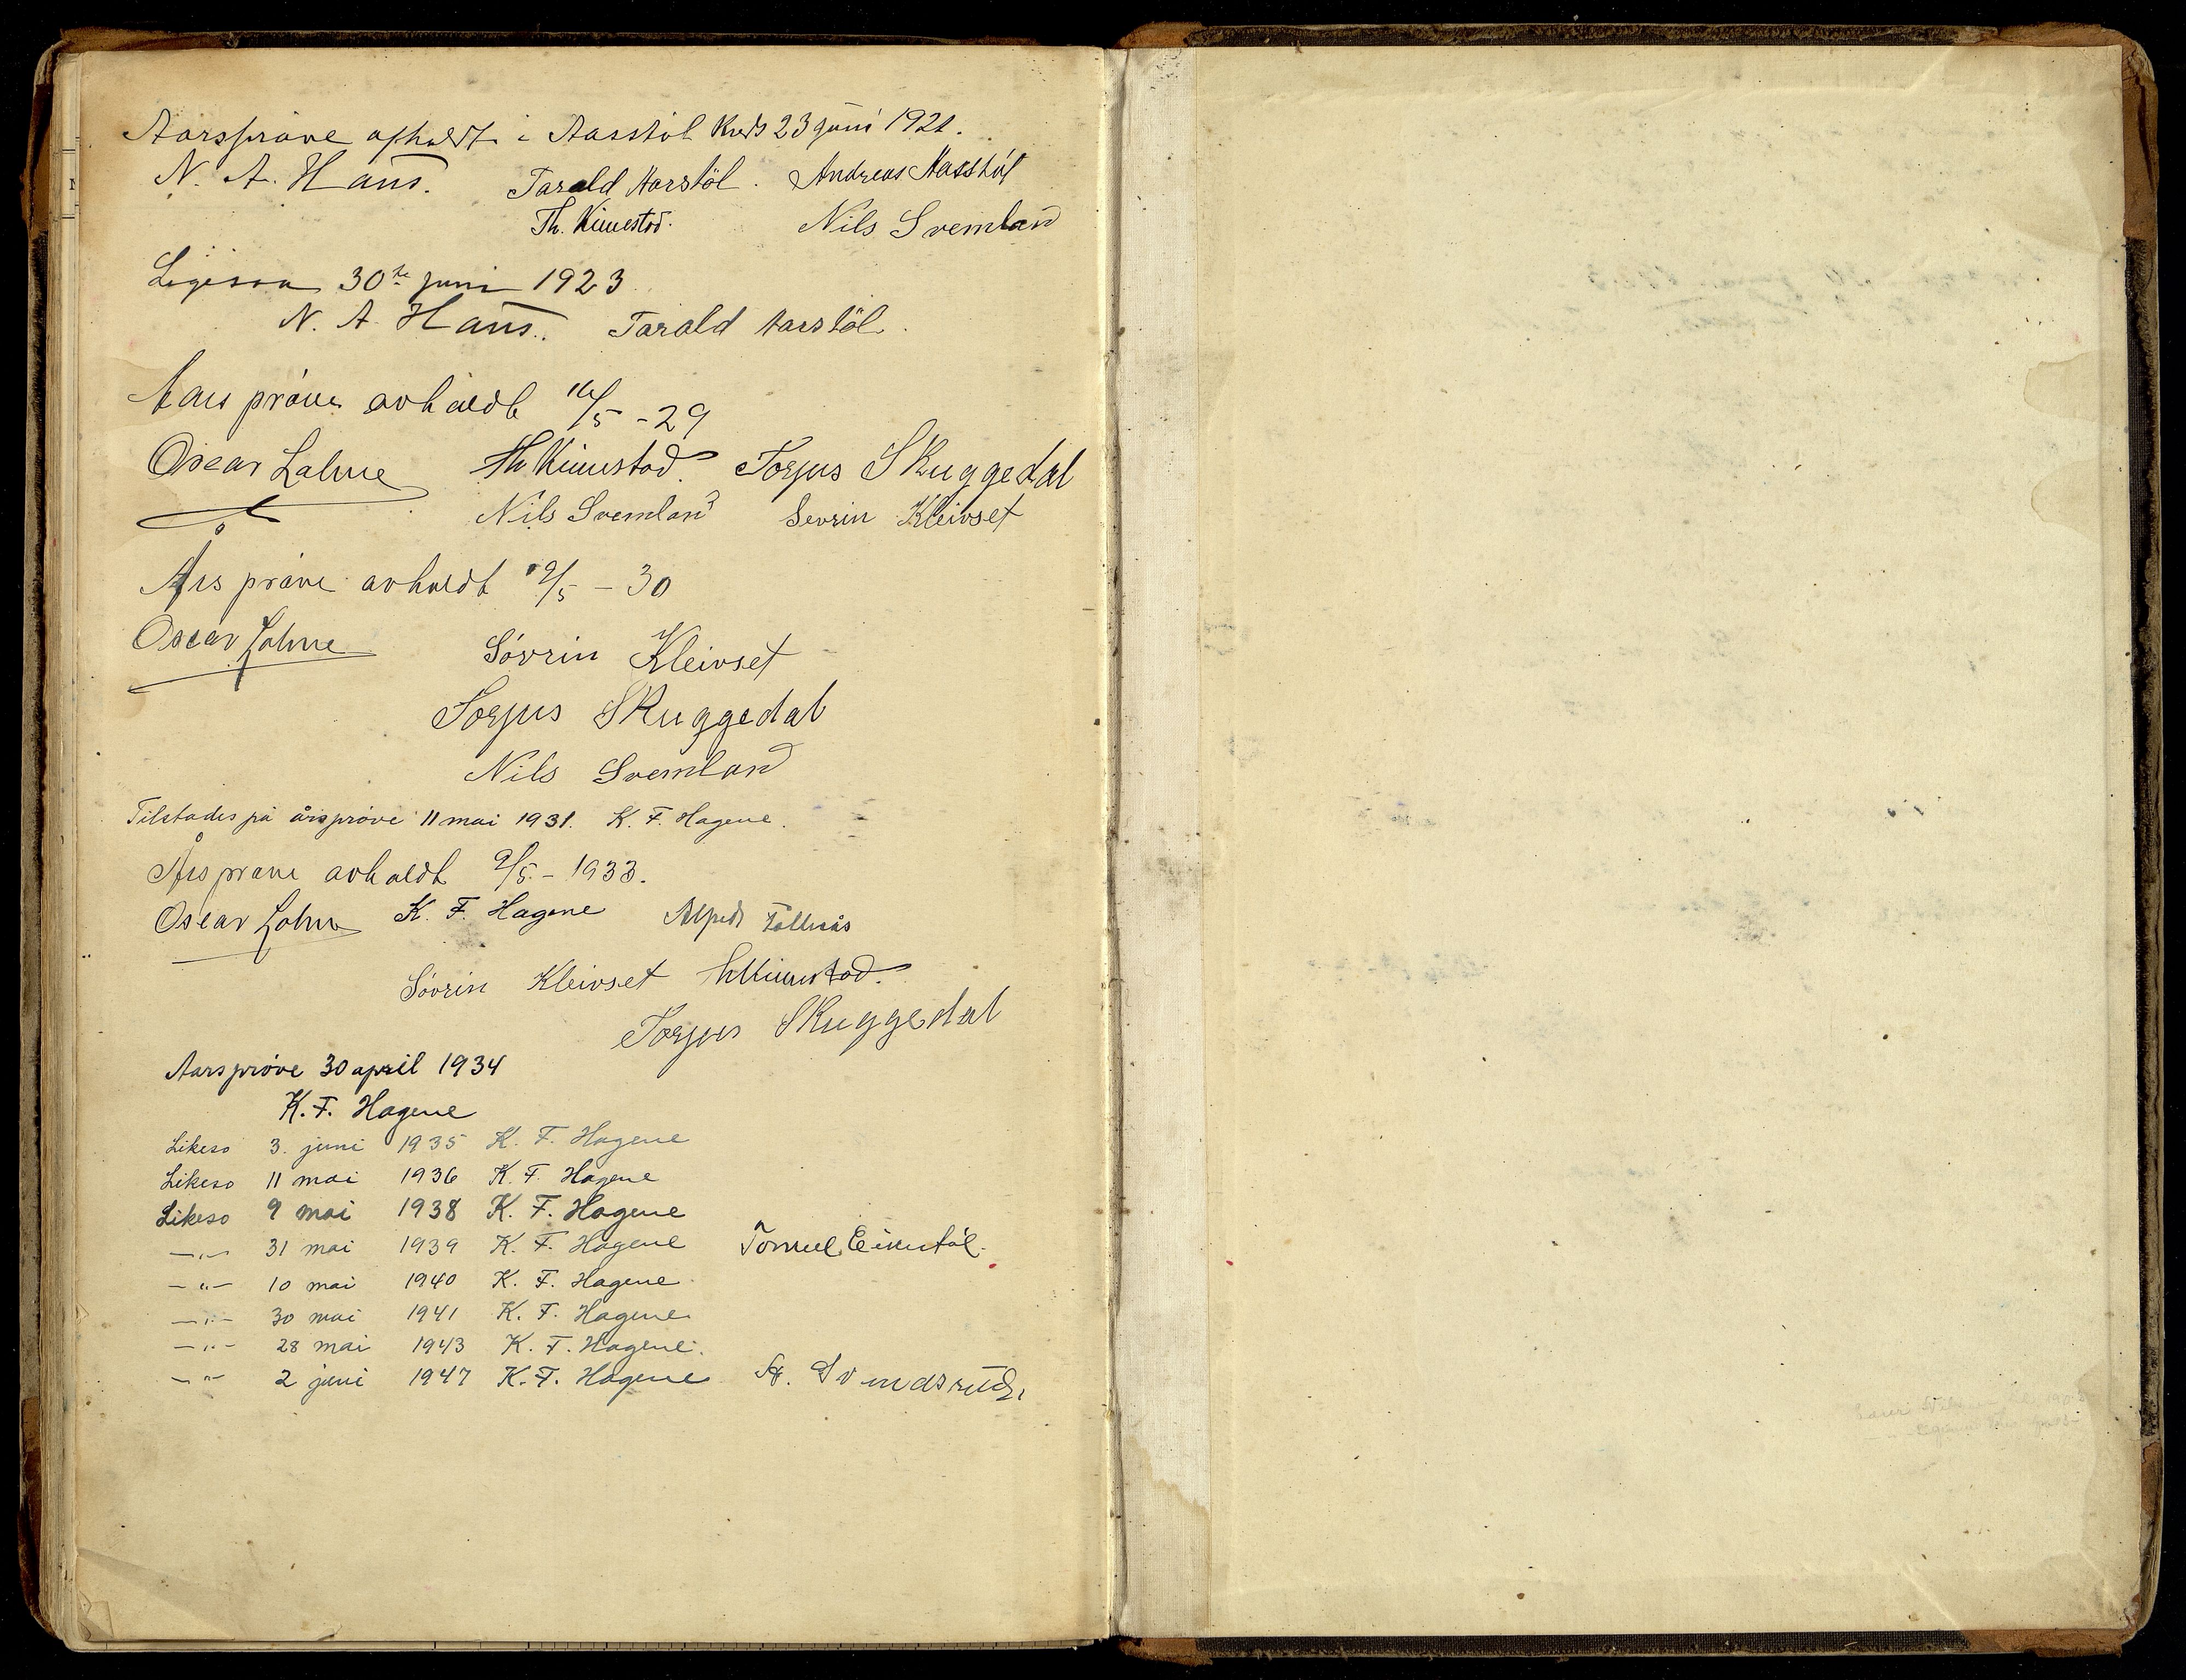 Aarsprøve afholdt i Aasstöl Kreds 23 juni 1921.
N. A. Haus. Tarald Aarstöl. Andreas Aasstöl
Th. Kimestad. Nils Svemland
Ligesaa 30te juni 1923
N. A. Haus. Tarald Aarstöl.
Aars prøve avholdt 16/5 - 29
Oscar Lohne Th Kimestad. Torjus Skuggedal
Nils Svemland Sevrin Kleivset
Års prøve avholdt 9/5 - 30
Oscar Lohne Sövrin Kleivset
Torjus Skuggedal
Nils Svemland
Tilstades på årsprøve 11 mai 1931. K. F. Hagene.
Årsprøve avholdt 9/5 - 1933.
Oscar Lohne K. F. Hagene Alfred
Sövrin Kleivset Th Kimestad.
Torjus Skuggedal
Aarsprøve 30 april 1934
K. F. Hagene
Likeso 3. juni 1935 K. F. Hagene
Likeso 11 mai 1936 K. F. Hagene
Likeso 9 mai 1938 K. F. Hagene
—"— 31 mai 1939 K. F. Hagene
—"— 10 mai 1940 K. F. Hagene
—"— 30 mai 1941 K. F. Hagene
—"— 28 mai 1943 K. F. Hagene.
—"— 2 juni 1947 K. F. Hagene